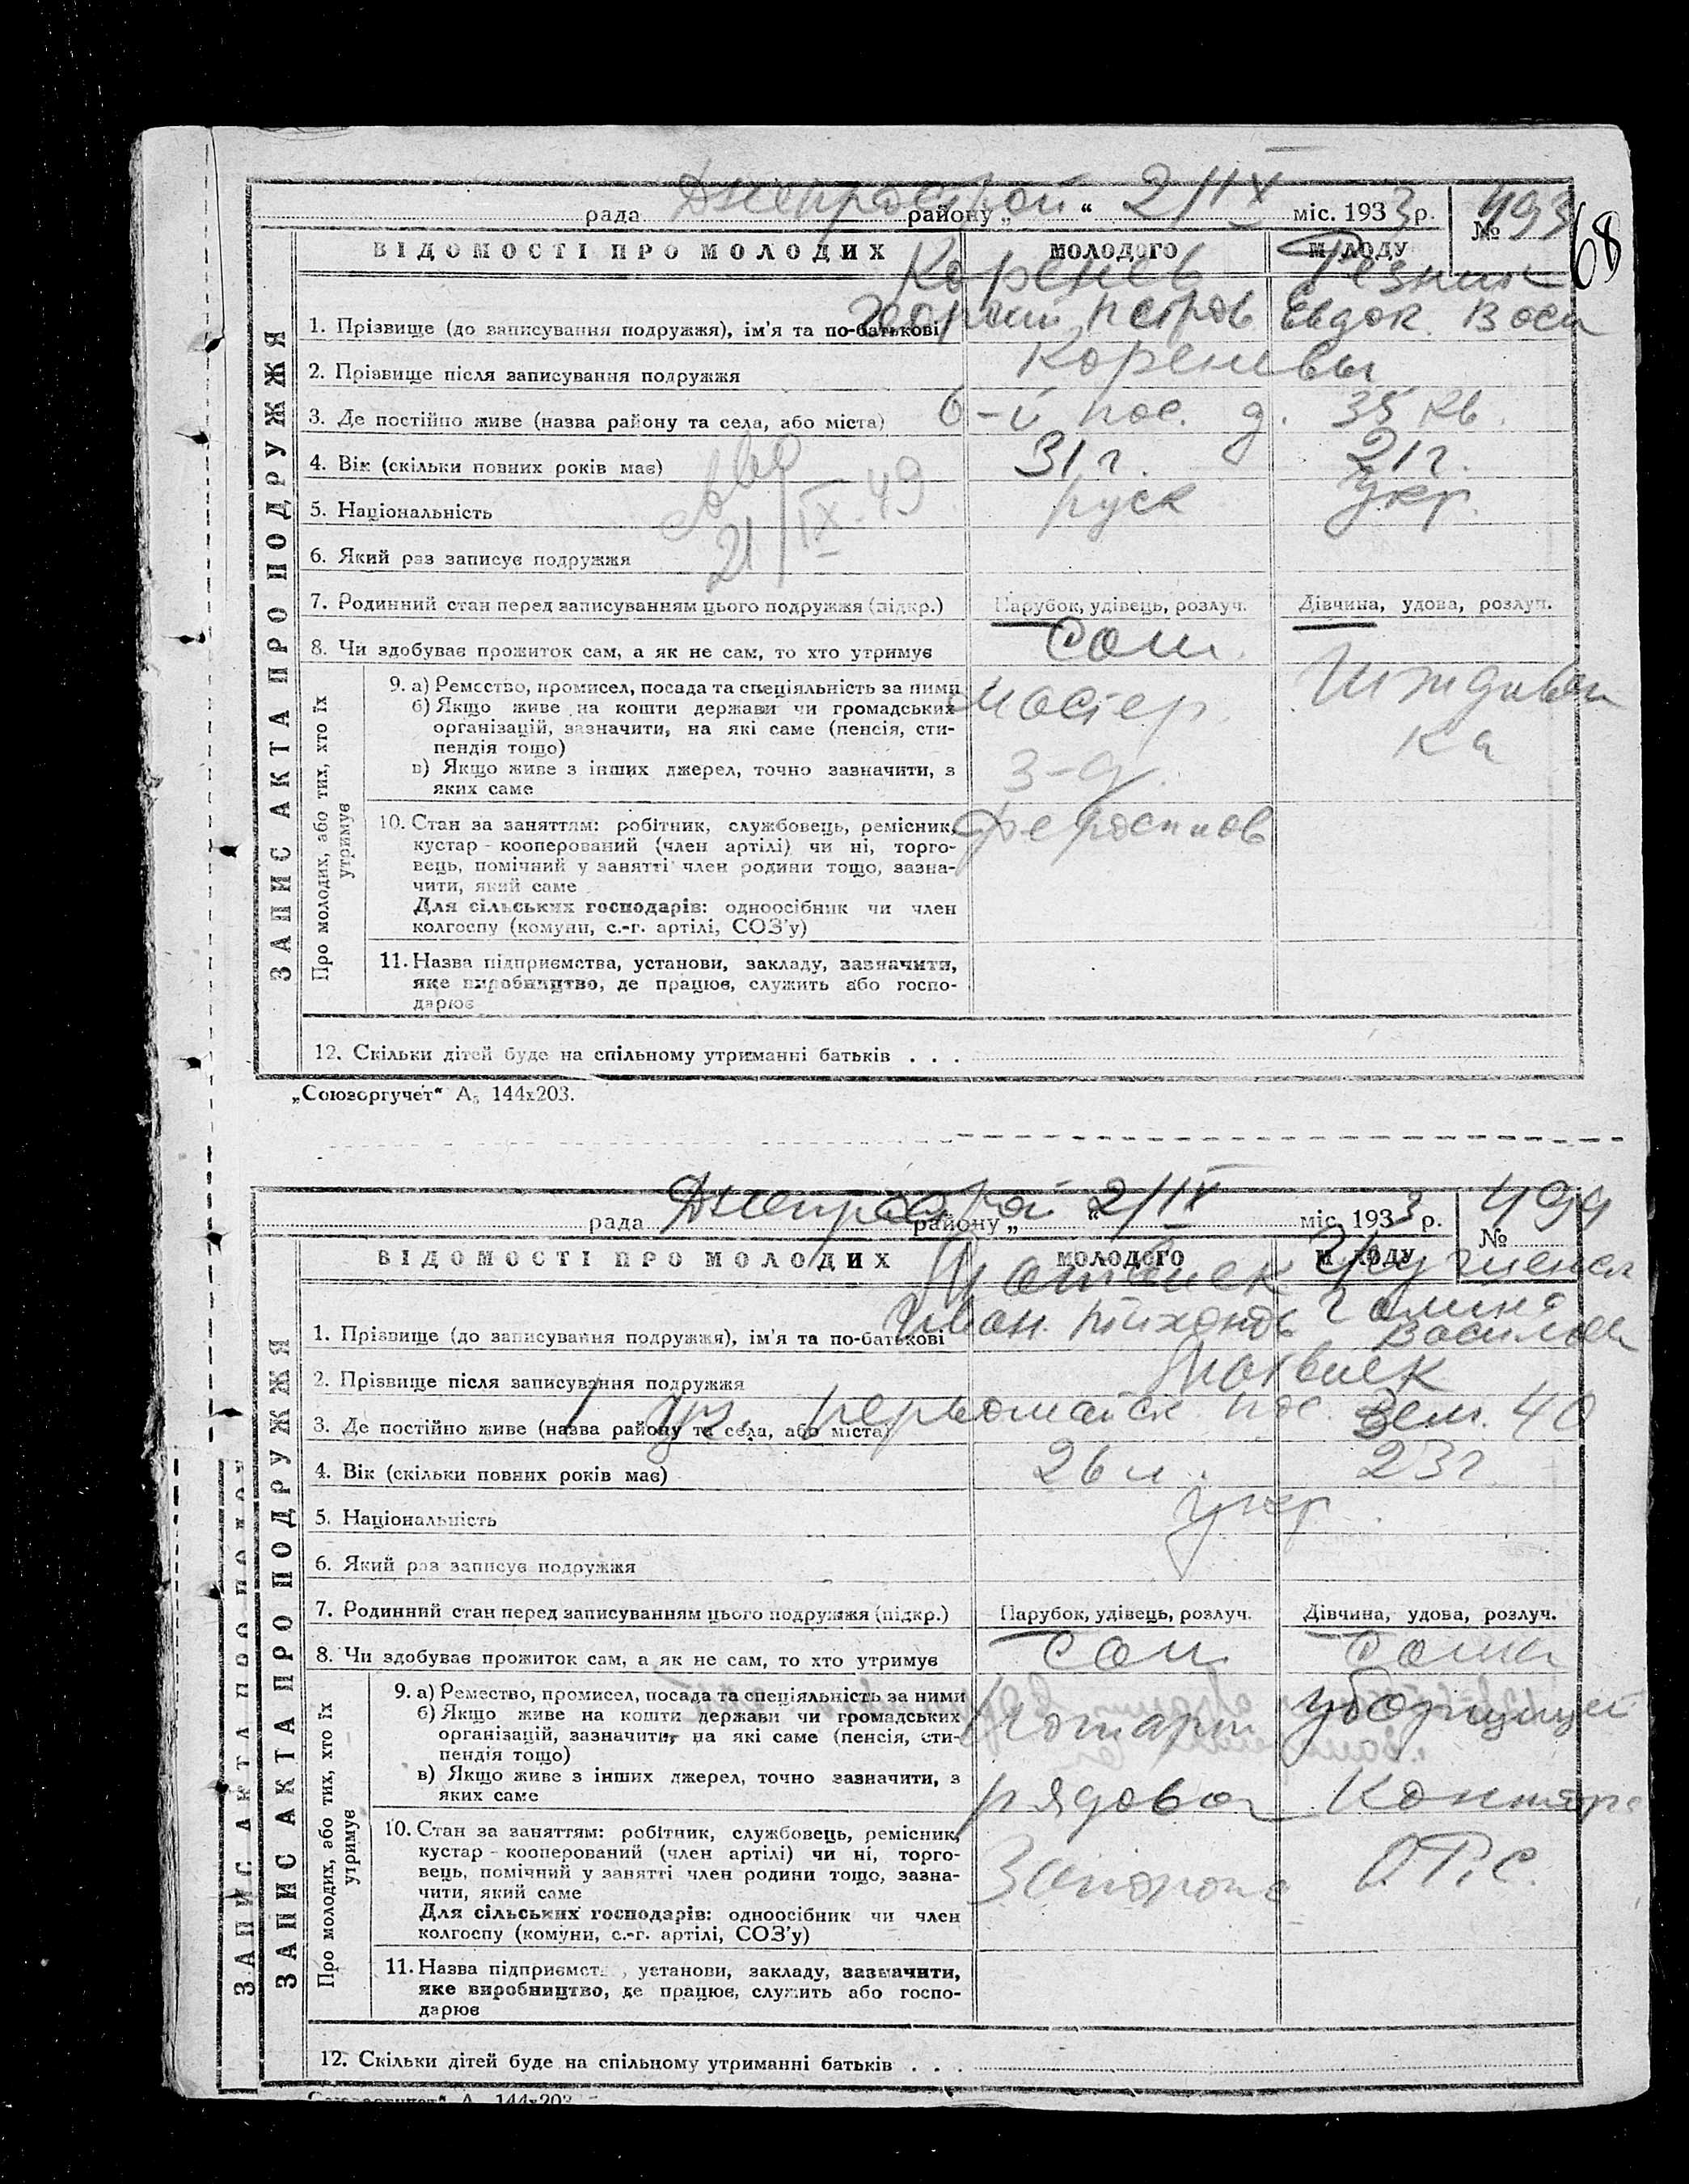 рада Днепрострой району „ “ 2/IX міс. 1933 р. № 493
68
ВІДОМОСТІ ПРО МОЛОДИХ МОЛОДОГО МОЛОДУ
Коренев Резник
1. Прізвище (до записування подружжя), ім'я та по-батькові Георгий Петров Евдок. Васи
2. Прізвище після записування подружжя Кореневы
3. Де постійно живе (назва району та села, або міста) 6-й пос. д. 35 кв.
4. Вік (скільки повних років має) 31 г. 21 г.
5. Національність руск укр.
21/IX-49
6. Який раз записує подружжя
7. Родинний стан перед записуванням цього подружжя (підкр.) Парубок, удівець, розлуч. Дівчина, удова, розлуч.
8. Чи здобуває прожиток сам, а як не сам, то хто утримує Сам.
ЗАПИС АКТА ПРО ПОДРУЖЖЯ
Про молодих, або тих, хто їх утримує
9. а) Ремество, промисел, посада та спеціяльність за ними Мастер. Иждивен
б) Якщо живе на кошти держави чи громадських ка
організацій, зазначити, на які саме (пенсія, сти-
пендія тощо)
в) Якщо живе з інших джерел, точно зазначити, з З-д.
яких саме
10. Стан за заняттям: робітник, службовець, ремісник,
кустар - кооперований (член артілі) чи ні, торго-
вець, помічний у занятті член родини тощо, зазна-
чити, який саме
Для сільських господарів: одноосібник чи член
колгоспу (комуни, с.-г. артілі, СОЗ'у)
11. Назва підприємства, установи, закладу, зазначити,
яке виробництво, де працює, служить або госпо-
дарює
12. Скільки дітей буде на спільному утриманні батьків . . .
„Союзоргучет“ А5 144х203.
рада Днепрострой району „ “ 2/IX міс. 1933 р. № 494
ВІДОМОСТІ ПРО МОЛОДИХ МОЛОДОГО МОЛОДУ
1. Прізвище (до записування подружжя), ім'я та по-батькові Иван. Тихонов Галина
Василев
2. Прізвище після записування подружжя
3. Де постійно живе (назва району та села, або міста) Первомайск. пос. Зем. 40
4. Вік (скільки повних років має) 26 л. 23 г.
5. Національність укр
6. Який раз записує подружжя
7. Родинний стан перед записуванням цього подружжя (підкр.) Парубок, удівець, розлуч. Дівчина, удова, розлуч.
8. Чи здобуває прожиток сам, а як не сам, то хто утримує сам сама
ЗАПИС АКТА ПРО ПОДРУЖЖЯ
ЗАПИС АКТА ПРО ПОДРУЖЖЯ
Про молодих, або тих, хто їх утримує
9. а) Ремество, промисел, посада та спеціяльність за ними уборщицей
б) Якщо живе на кошти держави чи громадських
організацій, зазначити, на які саме (пенсія, сти-
пендія тощо)
в) Якщо живе з інших джерел, точно зазначити, з рядовой
яких саме
10. Стан за заняттям: робітник, службовець, ремісник,
кустар - кооперований (член артілі) чи ні, торго-
вець, помічний у занятті член родини тощо, зазна-
чити, який саме
Для сільських господарів: одноосібник чи член
колгоспу (комуни, с.-г. артілі, СОЗ'у)
11. Назва підприємства, установи, закладу, зазначити,
яке виробництво, де працює, служить або госпо-
дарює
12. Скільки дітей буде на спільному утриманні батьків . . .
„Союзоргучет“ А 144х203